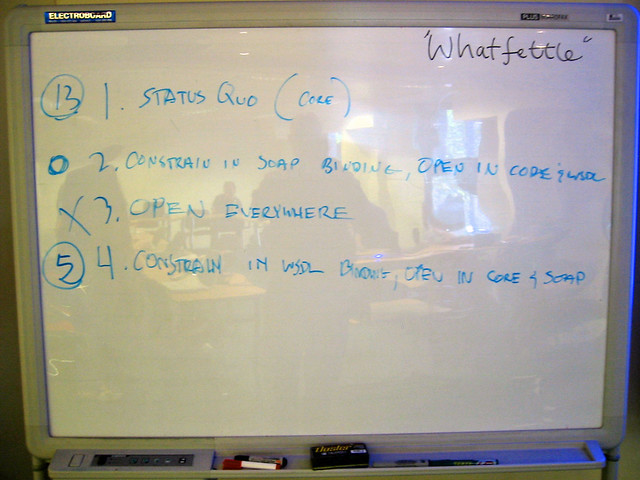 ELECTROBOARD
PLUS
"Whatfettle"
13 1. STATUS QUO (CORE)
0 2. CONSTRAIN IN SOAP BINDING, OPEN IN CORE & WSDL
X 3. OPEN EVERYWHERE
5 4. CONSTRAIN IN WSDL BINDING, OPEN IN CORE & SOAP